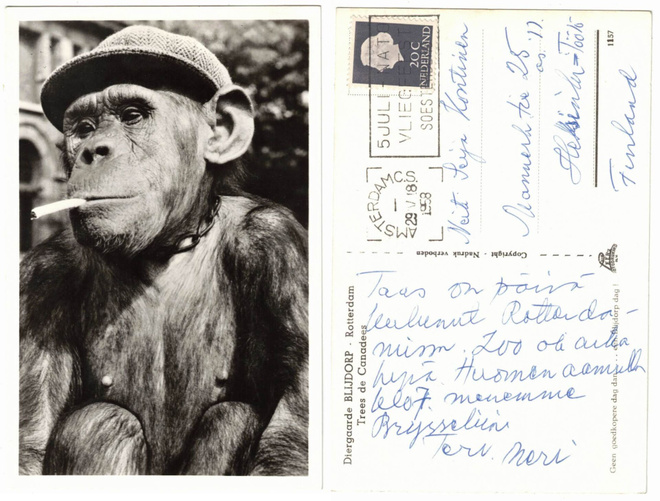 Diergaarde BLIJDORP - Rotterdam
Trees de Canadees
Taas on päivä
kulunut Rotterda-
missa. Zoo oli aika
hyvä. Huomen aamulla
klo 7. menemme
Brysseliin
Terv. Meri
Copyright - Nadruk verboden
AMSTERDAM C.S.
1958
5 JULI NAT
VLIEGFEEST
SOEST
20C
NEDERLAND
Neiti Seija Kostinen
Mannerh.tie 25
as. 17.
Helsinki-Töölö
Finland
1157
Geen goedkopere dag dan een Blijdorp dag!